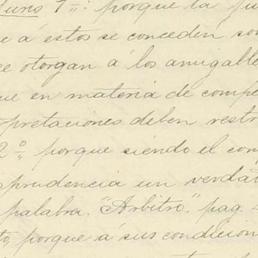 1º: porque la
a éstos se conceden
otorgan a los amigable
en materia de compe
pretaciones deben restr
2º porque siendo el con
prudencia un verda
palabra. "Arbitro." pag.
porque a sus condicion